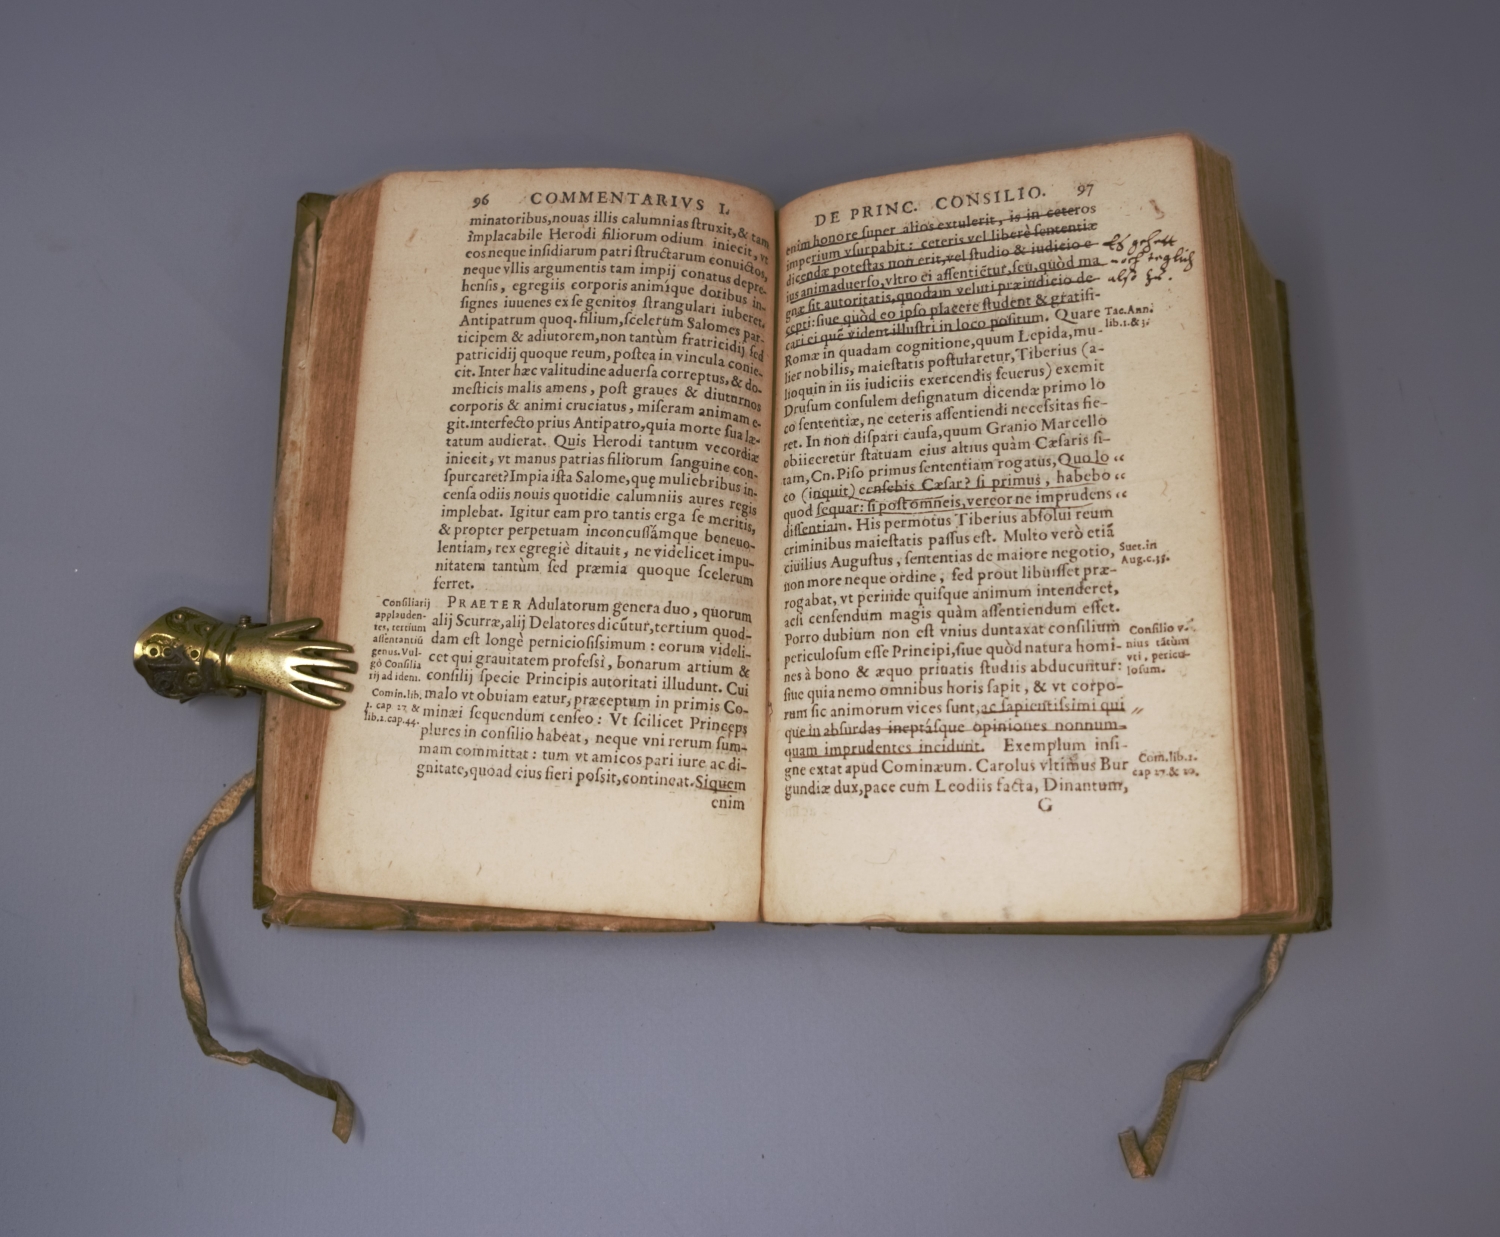 96 COMMENTARIVS I.
minatoribus, nouas illis calumnias struxit, & tam
implacabile Herodi filiorum odium iniecit, vt
eos neque insidiarum patri structarum conuictos,
neque vllis argumentis tam impij conatus depre-
hensis, egregiis corporis animique dotibus in-
signes iuuenes ex se genitos strangulari iuberet.
Antipatrum quoq. filium, scelerum Salomes par-
ticipem & adiutorem, non tantùm fratricidij sed
patricidij quoque reum, postea in vincula conie-
cit. Inter hæc valitudine aduersa correptus, & do-
mesticis malis amens, post graues & diuturnos
corporis & animi cruciatus, miseram animam e-
git. interfecto prius Antipatro, quia morte sua læ-
tatum audierat. Quis Herodi tantum vecordiæ
iniecit, vt manus patrias filiorum sanguine con-
spurcaret? Impia ista Salome, quę muliebribus in-
censa odiis nouis quotidie calumniis aures regis
implebat. Igitur eam pro tantis erga se meritis,
& propter perpetuam inconcussámque beneuo-
lentiam, rex egregiè ditauit, ne videlicet impu-
nitatem tantùm sed præmia quoque scelerum
ferret.
Consiliarij
applauden-
tes, tertium
assentantiũ
genus. Vul-
gò Consilia
rij ad idem.
Comin. lib.
1. cap 27. &
lib. 2. cap. 44.
PRAETER Adulatorum genera duo, quorum
alij Scurræ, alij Delatores dicũtur, tertium quod-
dam est longè perniciosissimum: eorum videli-
cet qui grauitatem professi, bonarum artium &
consilij specie Principis autoritati illudunt. Cui
malo vt obuiam eatur, præceptum in primis Co-
minæi sequendum censeo: Vt scilicet Princeps
plures in consilio habeat, neque vni rerum sum-
mam committat: tum vt amicos pari iure ac di-
gnitate, quoad eius fieri possit, contineat. Siquem
enim
DE PRINC. CONSILIO. 97
enim honore super alios extulerit, is in ceteros
imperium vsurpabit: ceteris vel liberè sententiæ
dicendæ potestas non erit, vel studio & iudicio e-
ius animaduerso, vltro ei assentiẽtur, seu, quòd ma
gnæ sit autoritatis, quodam veluti præiudicio de-
cepti: siue quòd eo ipso placere student & gratifi-
cari ei quẽ vident illustri in loco positum. Quare
Romæ in quadam cognitione, quum Lepida, mu-
lier nobilis, maiestatis postularetur, Tiberius (a-
lioquin in iis iudiciis exercendis seuerus) exemit
Drusum consulem designatum dicendæ primo lo
co sententiæ, ne ceteris assentiendi necessitas fie-
ret. In non dispari causa, quum Granio Marcello
obiiceretur statuam eius altius quàm Cæsaris si-
tam, Cn. Piso primus sententiam rogatus, Quo lo “
co (inquit) censebis Cæsar? si primus, habebo “
quod sequar: si post omneis, vereor ne imprudens “
dissentiam. His permotus Tiberius absolui reum
criminibus maiestatis passus est. Multo verò etiã
ciuilius Augustus, sententias de maiore negotio,
non more neque ordine, sed prout libuisset præ-
rogabat, vt perinde quisque animum intenderet,
acsi censendum magis quàm assentiendum esset.
Porro dubium non est vnius duntaxat consilium
periculosum esse Principi, siue quòd natura homi-
nes à bono & æquo priuatis studiis abducuntur:
siue quia nemo omnibus horis sapit, & vt corpo-
rum sic animorum vices sunt, ac sapientissimi qui “
que in absurdas ineptásque opiniones nonnun-
quam imprudentes incidunt. Exemplum insi-
gne extat apud Cominæum. Carolus vltimus Bur
gundiæ dux, pace cum Leodiis facta, Dinantum,
G
Tac. Ann.
lib. 1. & 3.
Suet. in
Aug. c. 35.
Consilio v-
nius tãtùm
vti, pericu-
losum.
Com. lib. 1.
cap 27. & 29.